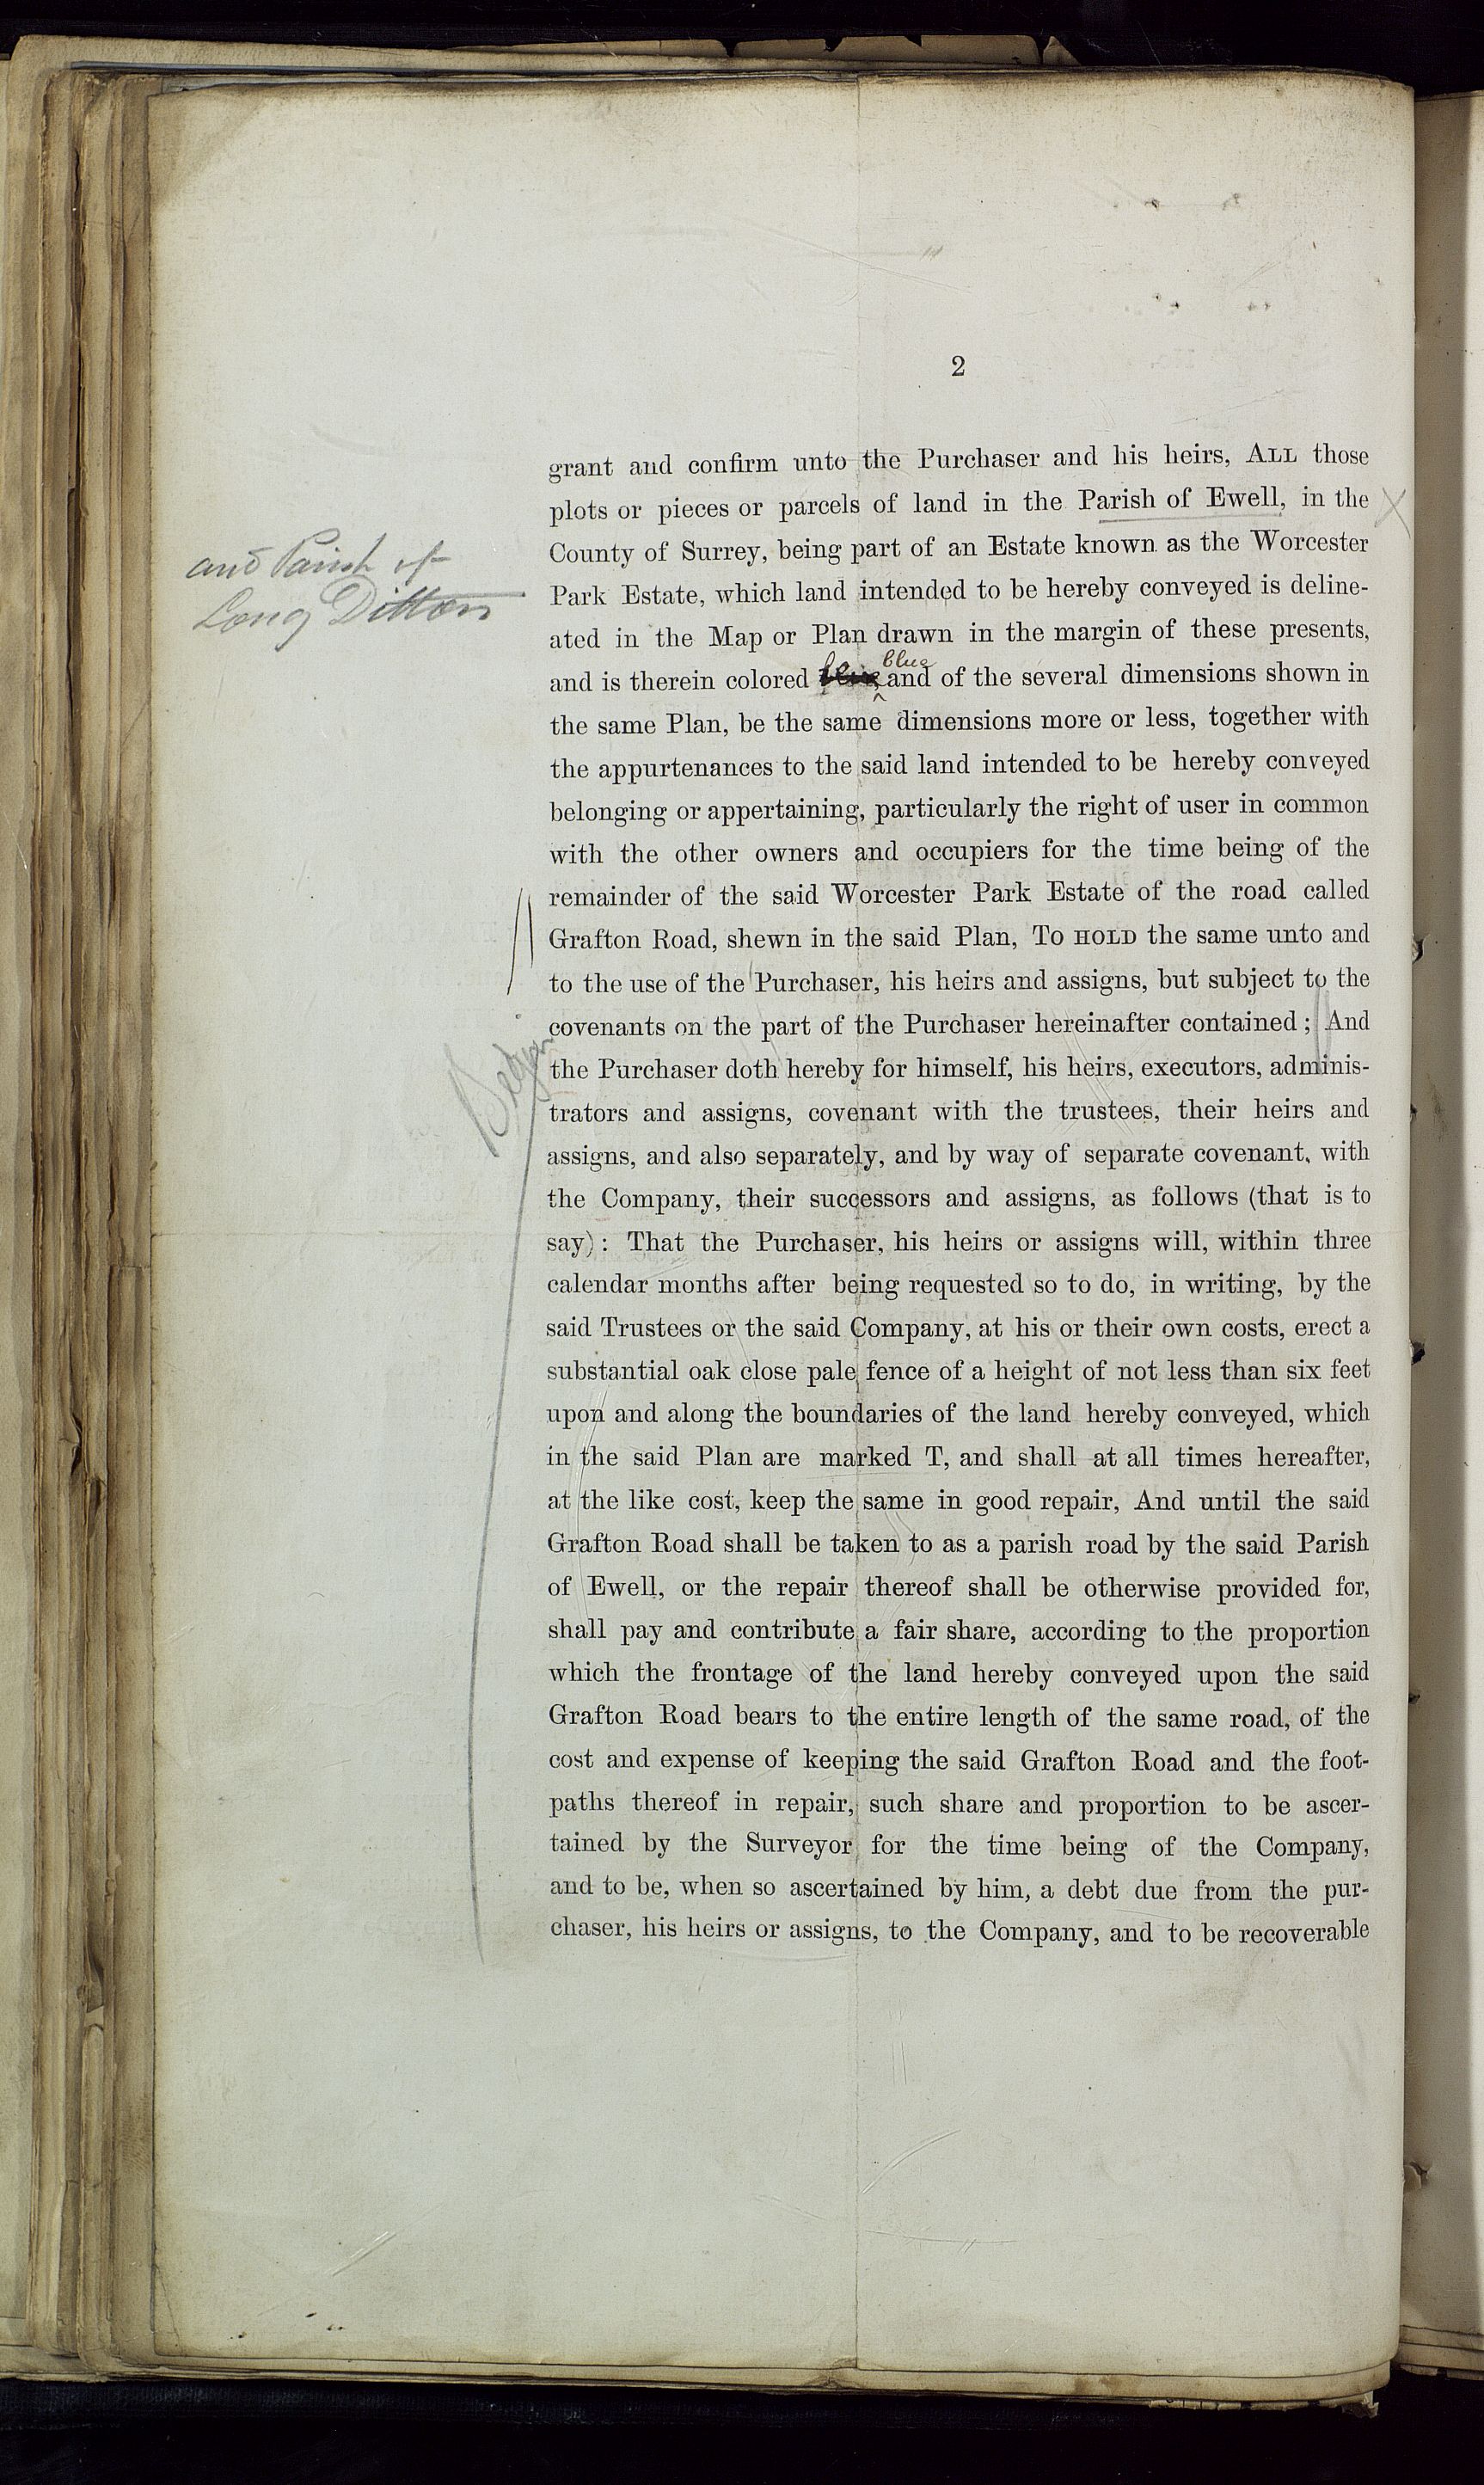 2
grant and confirm unto the Purchaser and his heirs, ALL those
plots or pieces or parcels of land in the Parish of Ewell, in the
County of Surrey, being part of an Estate known as the Worcester
and Parish of
Long Ditton
Park Estate, which land intended to be hereby conveyed is deline-
ated in the Map or Plan drawn in the margin of these presents,
blue
and is therein colored and of the several dimensions shown in
the same Plan, be the same dimensions more or less, together with
the appurtenances to the said land intended to be hereby conveyed
belonging or appertaining, particularly the right of user in common
with the other owners and occupiers for the time being of the
remainder of the said Worcester Park Estate of the road called
Grafton Road, shewn in the said Plan, To HOLD the same unto and
to the use of the Purchaser, his heirs and assigns, but subject to the
covenants on the part of the Purchaser hereinafter contained; And
the Purchaser doth hereby for himself, his heirs, executors, adminis-
trators and assigns, covenant with the trustees, their heirs and
assigns, and also separately, and by way of separate covenant, with
the Company, their successors and assigns, as follows (that is to
say): That the Purchaser, his heirs or assigns will, within three
calendar months after being requested so to do, in writing, by the
said Trustees or the said Company, at his or their own costs, erect a
substantial oak close pale fence of a height of not less than six feet
upon and along the boundaries of the land hereby conveyed, which
in the said Plan are marked T, and shall at all times hereafter,
at the like cost, keep the same in good repair, And until the said
Grafton Road shall be taken to as a parish road by the said Parish
of Ewell, or the repair thereof shall be otherwise provided for,
shall pay and contribute a fair share, according to the proportion
which the frontage of the land hereby conveyed upon the said
Grafton Road bears to the entire length of the same road, of the
cost and expense of keeping the said Grafton Road and the foot-
paths thereof in repair, such share and proportion to be ascer-
tained by the Surveyor for the time being of the Company,
and to be, when so ascertained by him, a debt due from the pur-
chaser, his heirs or assigns, to the Company, and to be recoverable